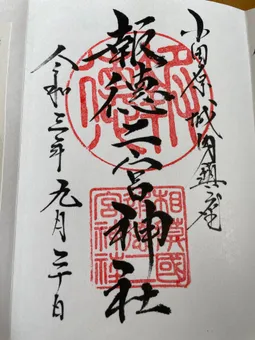 小田原城内鎮座
報徳二宮神社
令和三年九月二十日
相模國
報徳二
宮神社